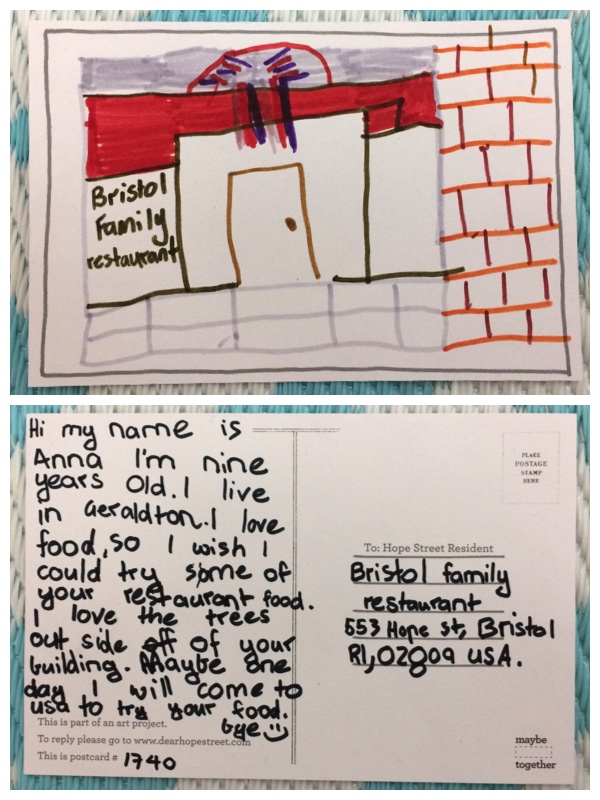 Bristol
Family
restaurant
Hi my name is
Anna I'm nine
years old. I live
in Geraldton. I love
food, so I wish I
could try some of
your restaurant food.
I love the trees
out side off of your
building. Maybe one
day I will come to
usa to try your food.
bye
This is part of an art project.
To reply please go to www.dearhopestreet.com
This is postcard # 1740
PLACE
POSTAGE
STAMP
HERE
To: Hope Street Resident
Bristol family
restaurant
553 Hope st, Bristol
RI, 02809 USA.
maybe
together